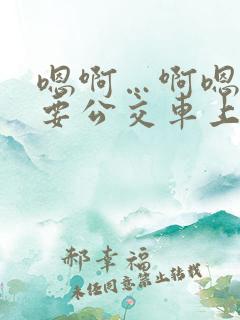 嗯啊…啊嗯
要公交车上
郝幸福
未经同意禁止转载